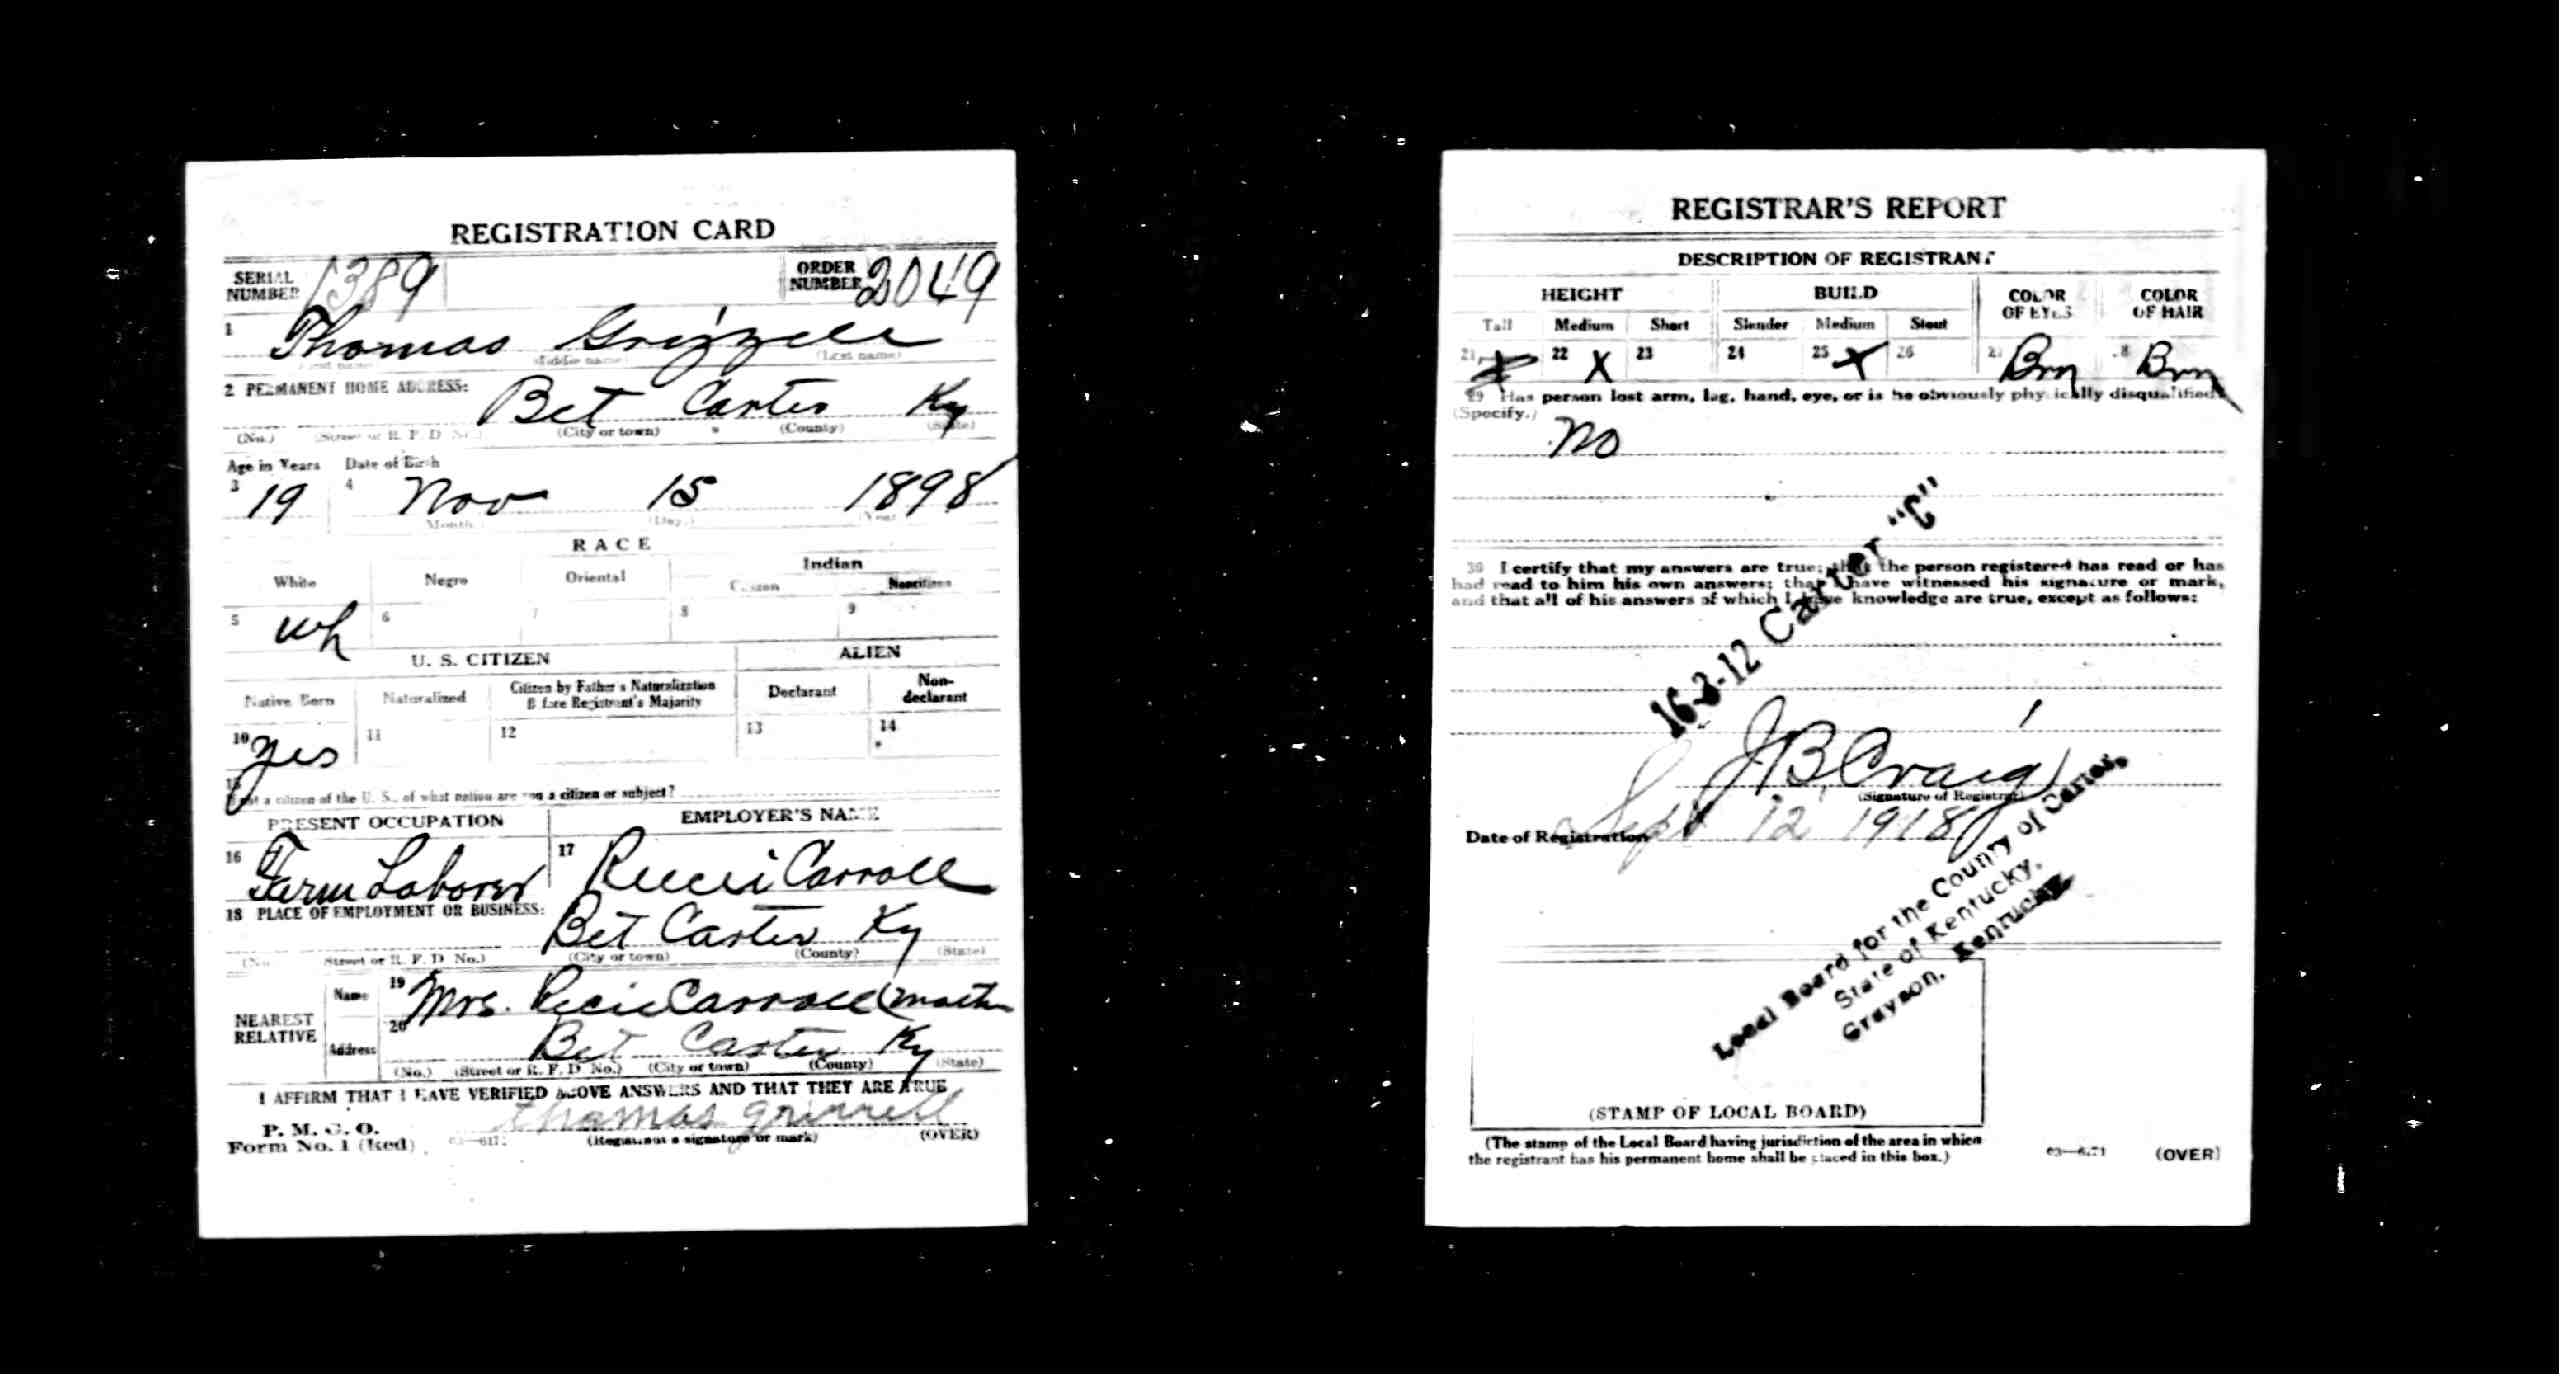 REGISTRATION CARD
SERIAL NUMBER 1389 ORDER NUMBER 2049
1 Thomas Grizzell
(Middle name) (Last name)
2 PERMANENT HOME ADDRESS: Bet Carter Ky
(No.) (Street or R. F. D. No.) (City or town) (County) (State)
Age in Years Date of Birth
3 19 4 Nov 15 1898
(Month.) (Day.) (Year.)
RACE
White Negro Oriental Indian
Citizen Noncitizen
5 wh 6 7 8 9
U. S. CITIZEN ALIEN
Native Born Naturalized Citizen by Father's Naturalization Before Registrant's Majority Declarant Non-declarant
10 yes 11 12 13 14
15 If not a citizen of the U. S., of what nation are you a citizen or subject?
PRESENT OCCUPATION EMPLOYER'S NAME
16 Farm Laborer 17 Carroll
18 PLACE OF EMPLOYMENT OR BUSINESS:
Bet Carter Ky
(No.) Street or R. F. D No.) (City or town) (County) (State)
NEAREST RELATIVE
Name 19 Mrs. Recie Carroll (mother
Address 20 Bet Carter Ky
(No.) (Street or R. F. D. No.) (City or town) (County) (State)
I AFFIRM THAT I HAVE VERIFIED ABOVE ANSWERS AND THAT THEY ARE TRUE
P. M. G. O.
Form No. 1 (Red) thomas grizzell
(Registrant's signature or mark) (OVER)
REGISTRAR'S REPORT
DESCRIPTION OF REGISTRANT
HEIGHT BUILD COLOR OF EYES COLOR OF HAIR
Tall Medium Short Slender Medium Stout
21 X 22 X 23 24 25 X 26 27 Brn 28 Brn
29 Has person lost arm, leg, hand, eye, or is he obviously physically disqualified?
(Specify.)
No
30 I certify that my answers are true; that the person registered has read or has
had read to him his own answers; that I have witnessed his signature or mark,
and that all of his answers of which I have knowledge are true, except as follows:
16-3-12 Carter "C"
J B Craig
(Signature of Registrar)
Date of Registration Sept 12 1918
Local Board for the County of Carter,
State of Kentucky,
Grayson, Kentucky
(STAMP OF LOCAL BOARD)
(The stamp of the Local Board having jurisdiction of the area in which
the registrant has his permanent home shall be placed in this box.)
(OVER)